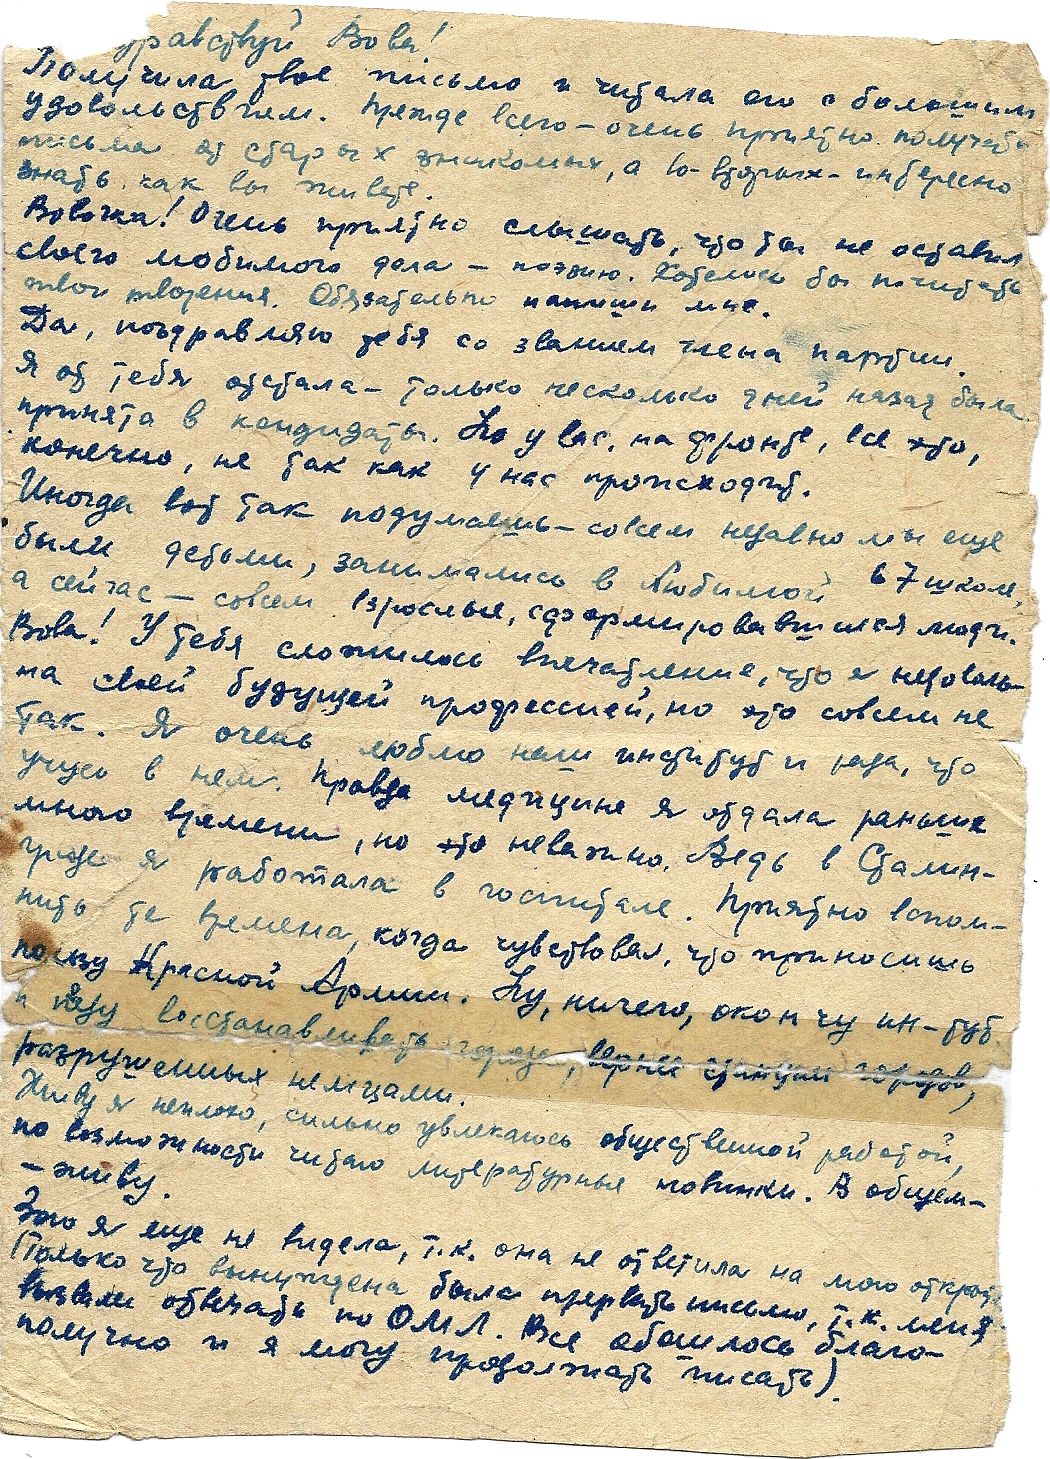 Здравствуй Вова!
Получила твое письмо и читала его с большим
удовольствием. Прежде всего – очень приятно получать
письма от старых знакомых, а во-вторых – интересно
знать как вы живете.
Вовочка! Очень приятно слышать, что ты не оставил
своего любимого дела – поэзию. Хотелось бы почитать
твои творения. Обязательно напиши мне.
Да, поздравляю тебя со званием члена партии.
Я от тебя отстала – только несколько дней назад была
принята в кандидаты. Но у вас, на фронте, все это,
конечно, не так как у нас происходит.
Иногда вот так подумаешь – совсем недавно мы еще
были детьми, занимались в любимой 67 школе,
а сейчас – совсем взрослые, сформировавшиеся люди.
Вова! У тебя сложилось впечатление, что я недоволь-
на своей будущей профессией, но это совсем не
так. Я очень люблю наш институт и рада, что
учусь в нем. Правда медицине я отдала раньше
много времени, но это неважно. Ведь в Сталин-
граде я работала в госпитале. Приятно вспом-
нить те времена, когда чувствовал, что приносишь
пользу Красной Армии. Ну, ничего, окончу ин-тут
и буду восстанавливать города, вернее станции городов,
разрушенных немцами.
Живу я неплохо, сильно увлекаюсь общественной работой,
по возможности читаю литературные новинки. В общем –
– живу.
Зою я еще не видела, т.к. она не ответила на мою открытку.
(Только что вынуждена была прервать письмо, т.к. меня
вызвали отвечать по ОМЛ. Все обошлось благо-
получно и я могу продолжать писать).